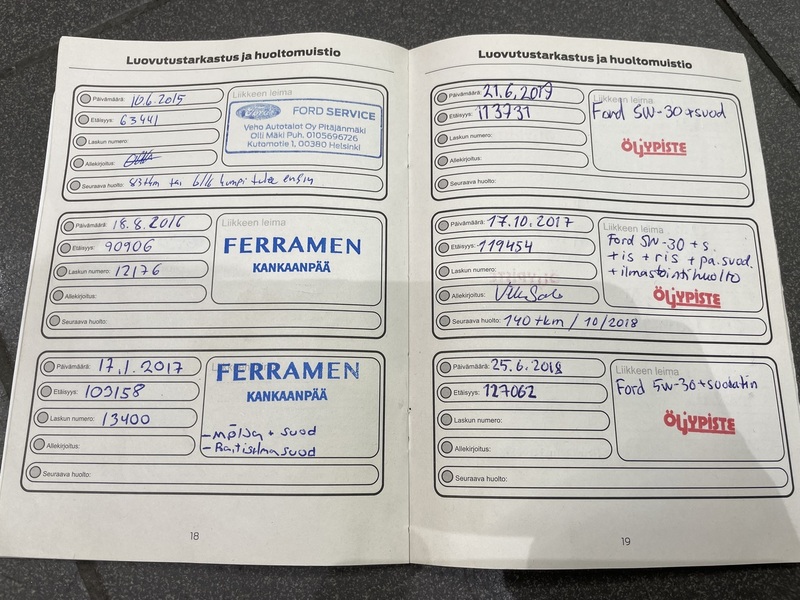 Luovutustarkastus ja huoltomuistio
Päivämäärä: 10.6.2015
Etäisyys: 63441
Laskun numero:
Allekirjoitus:
Seuraava huolto: 83tkm tai 6/16 kumpi tulee ensin
Liikkeen leima
Ford
FORD SERVICE
Veho Autotalot Oy Pitäjänmäki
Olli Mäki Puh. 0105696726
Kutomotie 1, 00380 Helsinki
Päivämäärä: 18.8.2016
Etäisyys: 90906
Laskun numero: 12176
Allekirjoitus:
Seuraava huolto:
Liikkeen leima
FERRAMEN
KANKAANPÄÄ
Päivämäärä: 17.1.2017
Etäisyys: 103158
Laskun numero: 13400
Allekirjoitus:
Seuraava huolto:
FERRAMEN
KANKAANPÄÄ
- mölJa + suod
- Raitisilmasuod
18
Luovutustarkastus ja huoltomuistio
Päivämäärä: 21.6.2017
Etäisyys: 113731
Laskun numero:
Allekirjoitus:
Seuraava huolto:
Liikkeen leima
Ford 5W-30 + suod
ÖLJYPISTE
Päivämäärä: 17.10.2017
Etäisyys: 119454
Laskun numero:
Allekirjoitus:
Seuraava huolto: 140 tkm / 10/2018
Liikkeen leima
Ford 5W-30 + s.
+ is + ris + pa.suod.
+ ilmastointihuolto
ÖLJYPISTE
Päivämäärä: 25.6.2018
Etäisyys: 127062
Laskun numero:
Allekirjoitus:
Seuraava huolto:
Liikkeen leima
Ford 5W-30 + suodatin
ÖLJYPISTE
19